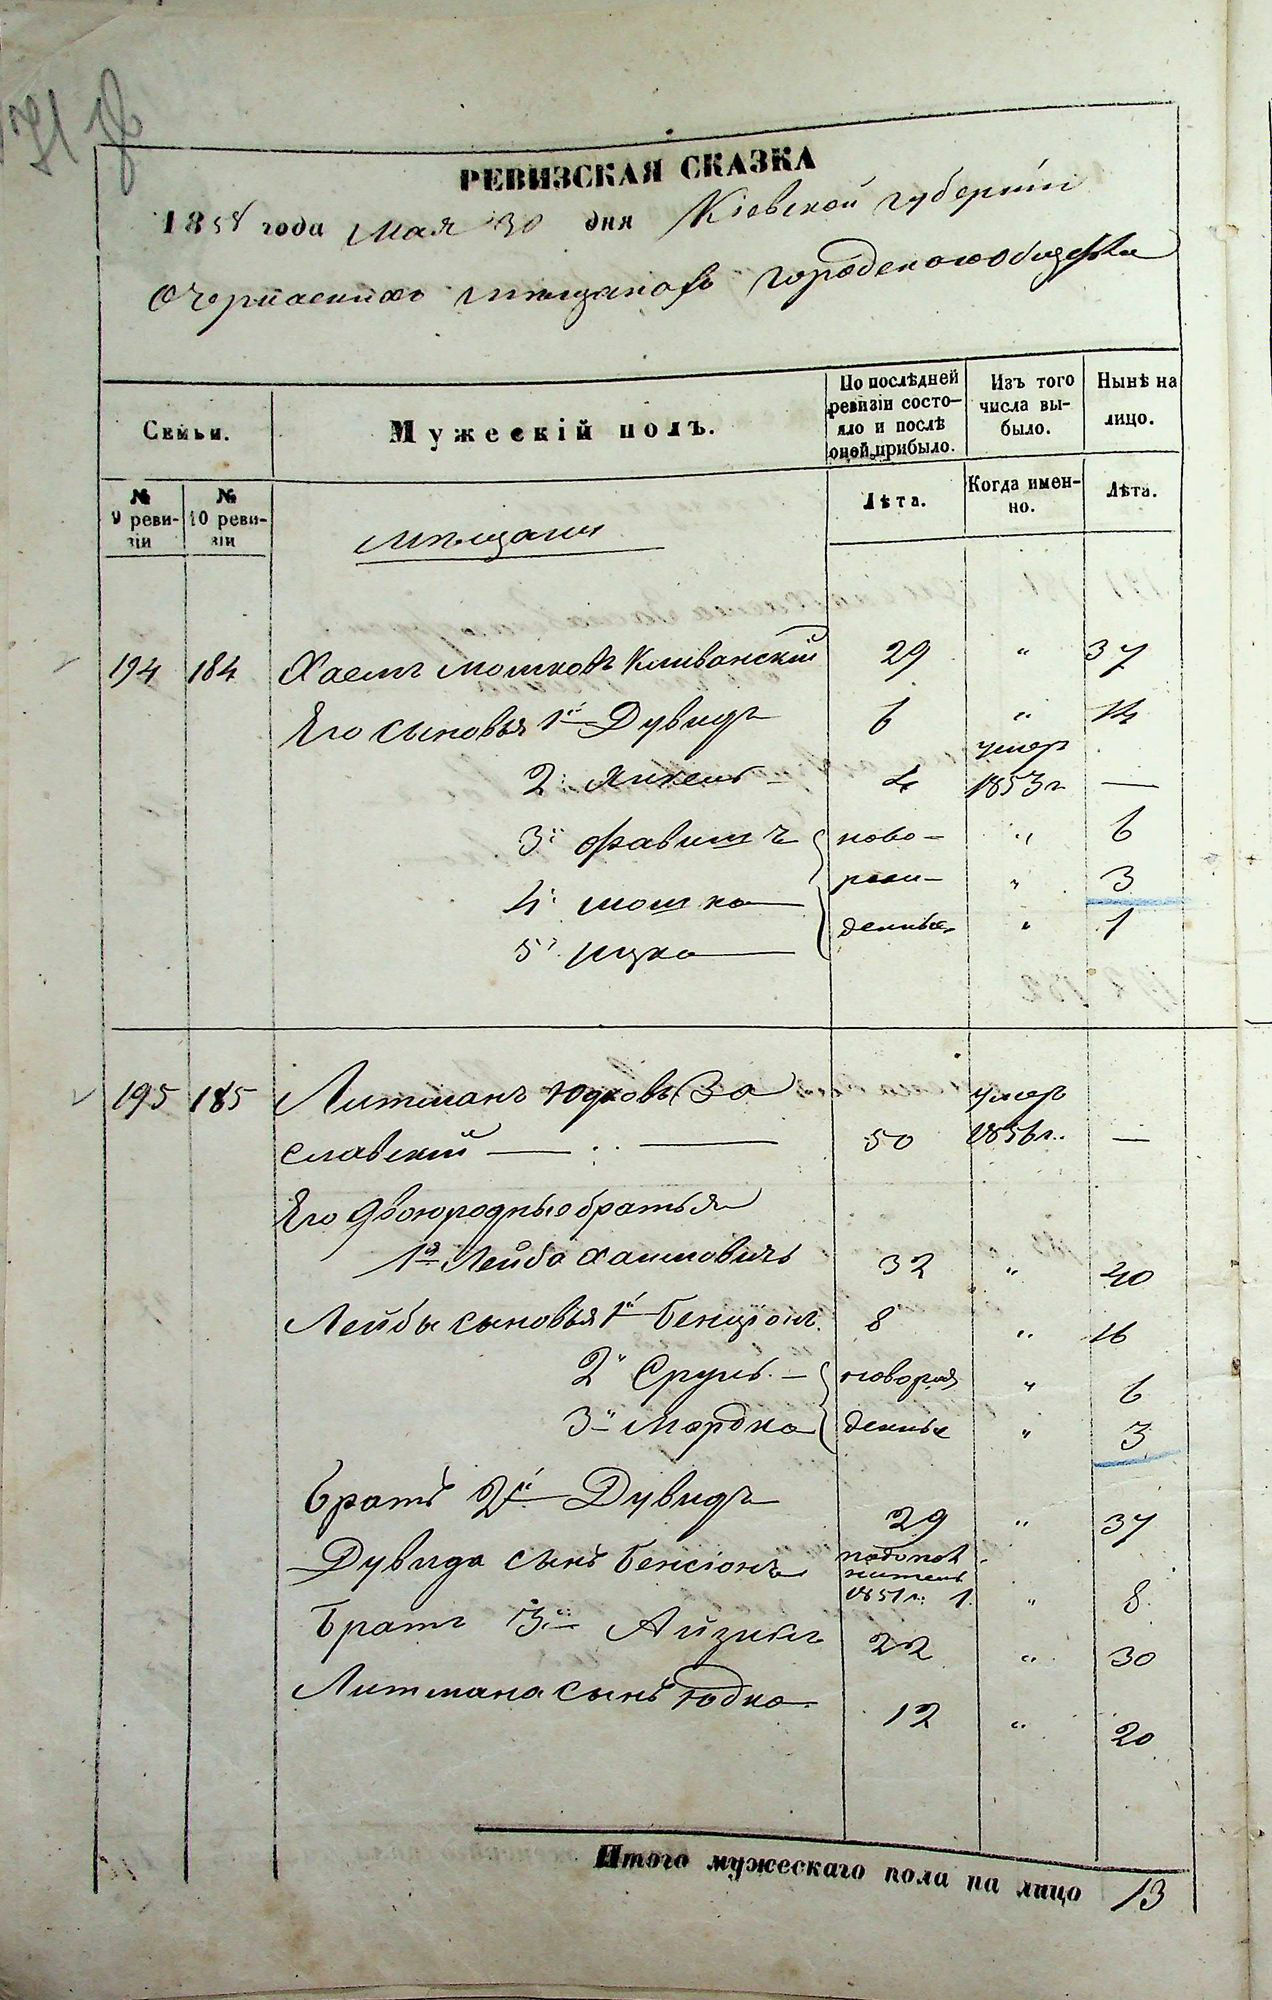 РЕВИЗСКАЯ СКАЗКА
1858 года Мая 30 дня Кіевской губерніи
мѣщановъ городскаго общества
Семьи.
Мужескій полъ.
По послѣдней ревизіи состояло и послѣ оной прибыло.
Изъ того числа выбыло.
Нынѣ на лицо.
№ 9 ревизіи
№ 10 ревизіи
Лѣта.
Когда именно.
Лѣта.
мѣщане
194 184 Хаемъ Мошковъ Кливанскій 29 " 37
Его сыновья 1й Дувидъ 6 " 14
2: Янкель 4 умеръ 1853г —
3й Файвишъ ново- " 6
4: Мошко рож- " 3
5й Ицко денные " 1
195 185 Литманъ Юдковъ За
славскій — 50 умеръ 1856г. —
Его двоюродные братья
1й Лейба Хаимовичъ 32 " 40
Лейбы сыновья 1й Бенціонъ 8 " 16
2й Сруль — новорож " 6
3й Мордко денные " 3
Братъ 2й Дувидъ 29 " 37
Дувида сынъ Бенсіонъ 1851г. 1 " 8
Братъ 3й Айзикъ 22 " 30
Литмана сынъ Юдко 12 " 20
Итого мужескаго пола на лицо 13